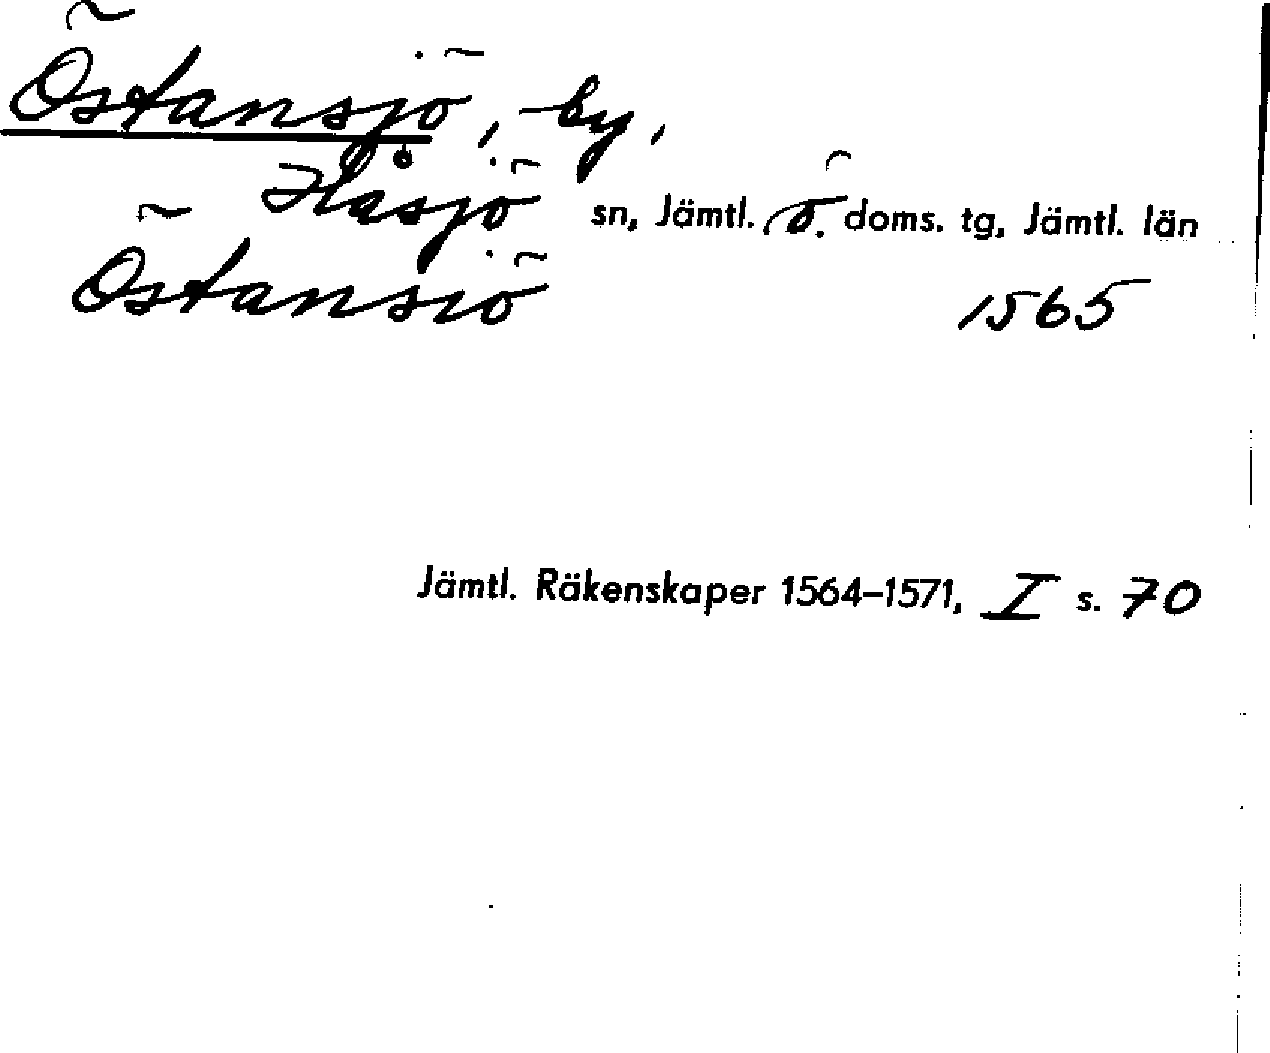 Östansjö, by,
Håsjö sn, Jämtl. ö. doms. tg, Jämtl. län
Östansiö 1565
Jämtl. Räkenskaper 1564–1571, I s. 70